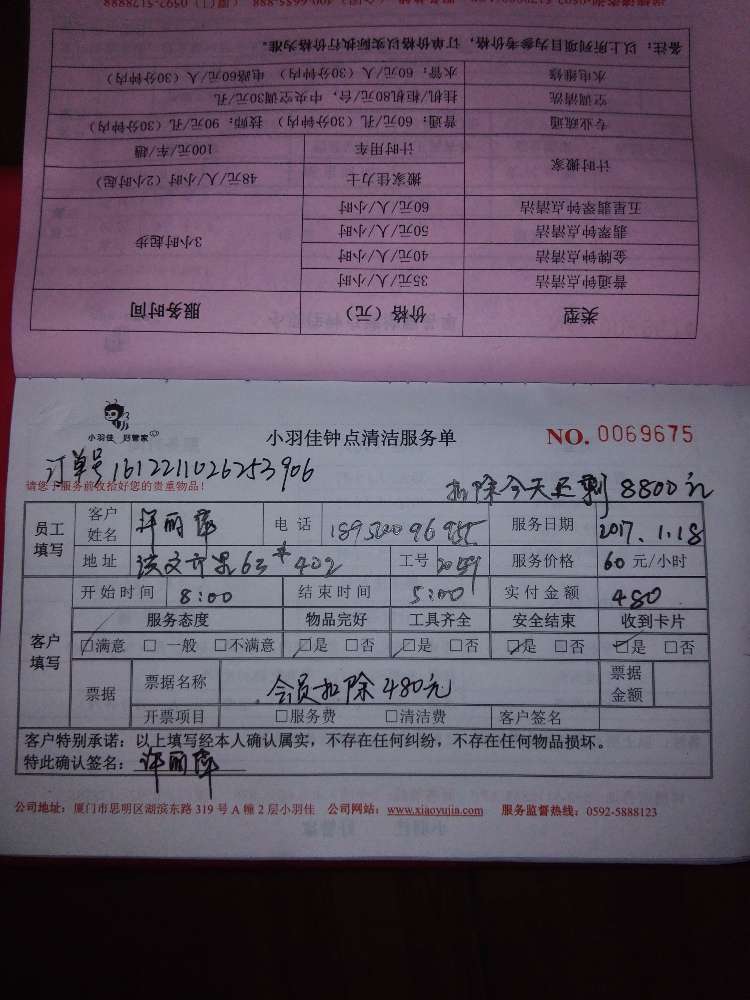 备注：以上所列项目为参考价格，订单价格以实际执行价格为准。
水电维修 水管：60元/人（30分钟内） 电路60元/人（30分钟内）
空调清洗 挂机/柜机80元/台，中央空调30元/孔
专业疏通 普通：60元/孔（30分钟内） 技师：90元/孔（30分钟内）
计时搬家 计时用车 100元/车/趟
搬家佳力士 48元/人/小时（2小时起）
五星翡翠钟点清洁 60元/人/小时
翡翠钟点清洁 50元/人/小时 3小时起步
金牌钟点清洁 40元/人/小时
普通钟点清洁 35元/人/小时
类型 价格（元） 服务时间
小羽佳 好管家
小羽佳钟点清洁服务单 NO. 0069675
订单号1612211026253906
请您于服务前收拾好您的贵重物品！ 扣除今天还剩8800元
员工填写 客户姓名 许丽萍 电话 服务日期 2017.1.18
地址 63# 402 工号 服务价格 60元/小时
开始时间 8:00 结束时间 5:00 实付金额 480
客户填写 服务态度 物品完好 工具齐全 安全结束 收到卡片
☑满意 □一般 □不满意 ☑是 □否 ☑是 □否 ☑是 □否 ☑是 □否
票据 票据名称 会员扣除480元 票据金额
开票项目 □服务费 □清洁费 客户签名
客户特别承诺：以上填写经本人确认属实，不存在任何纠纷，不存在任何物品损坏。
特此确认签名：许丽萍
公司地址：厦门市思明区湖滨东路319号A幢2层小羽佳 公司网站：www.xiaoyujia.com 服务监督热线：0592-5888123